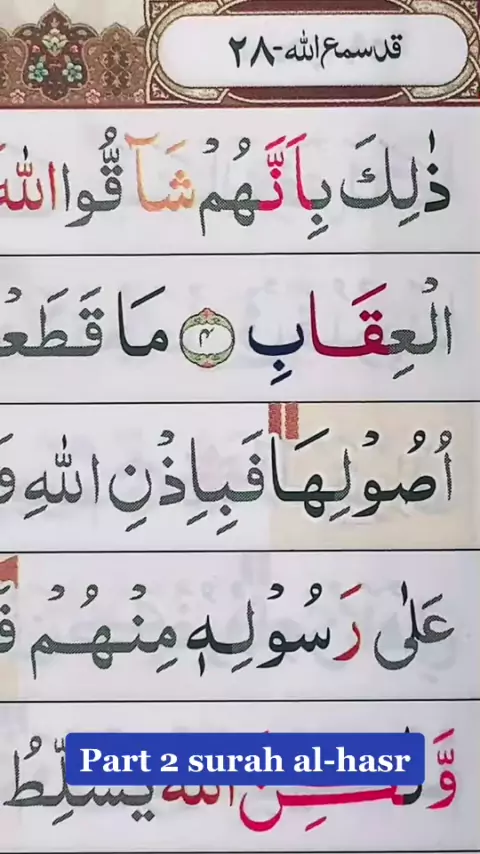 قدسمع الله-۲۸
ذٰلِكَ بِاَنَّهُمْ شَآقُّوا اللّٰهَ
الْعِقَابِ ۴ مَا قَطَعْ
اُصُوْلِهَا فَبِاِذْنِ اللّٰهِ وَ
عَلٰى رَسُوْلِهٖ مِنْهُمْ فَ
وَّلٰكِنَّ اللّٰهَ يُسَلِّطُ
Part 2 surah al-hasr